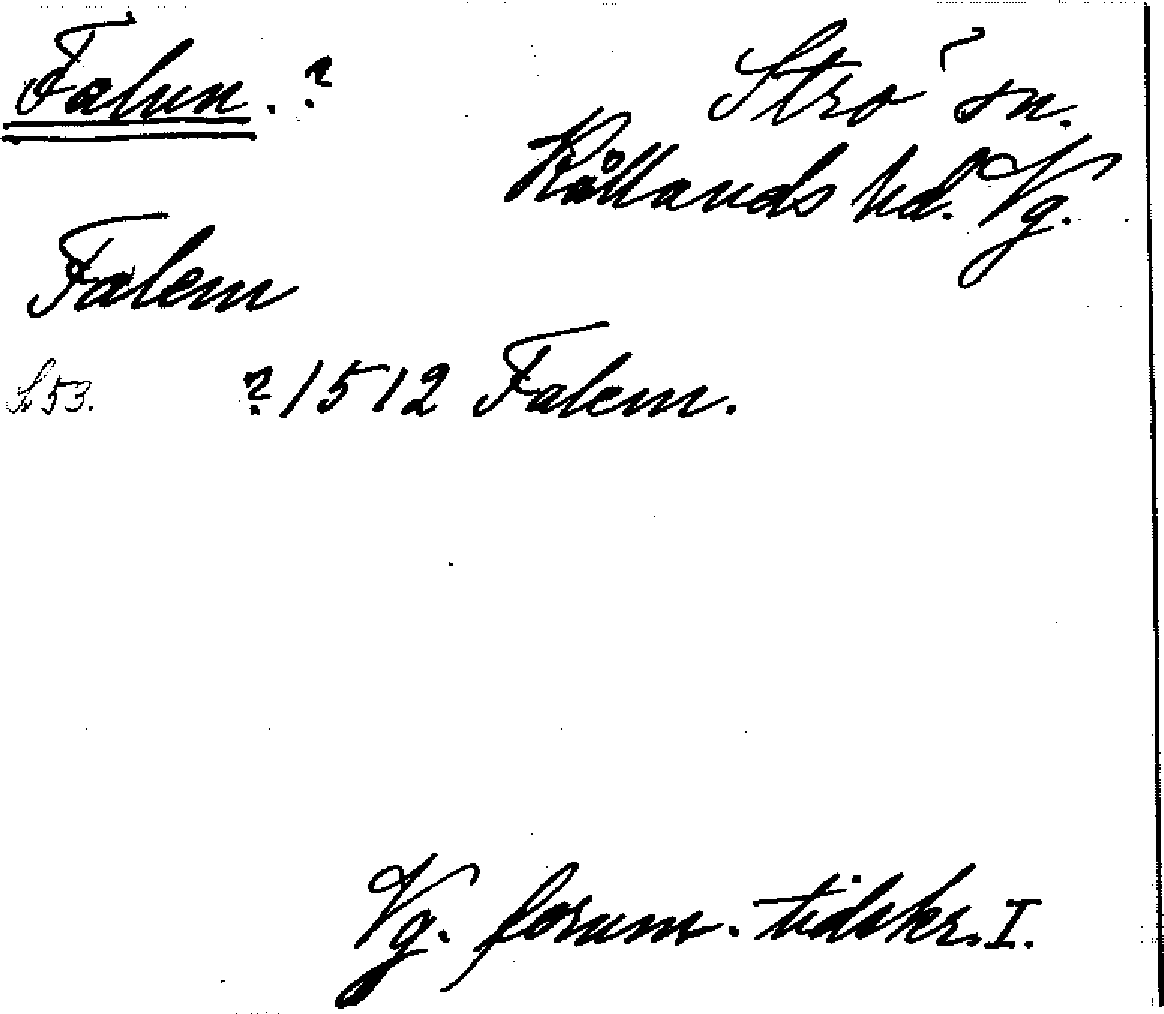 Falun. ?
Strö sn.
Kållands hd. Vg.
Falem
S. 53. ? 1512 Falem.
Vg. fornm. tidskr. I.